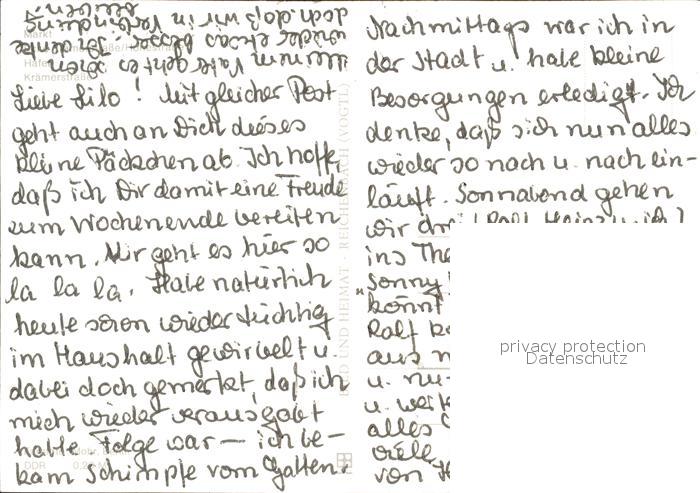 Liebe Lilo! Mit gleicher Post
geht auch an Dich dieses
kleine Päckchen ab. Ich hoffe,
daß ich Dir damit eine Freude
zum Wochenende bereiten
kann. Mir geht es hier so
la la la. Habe natürlich
heute schon wieder tüchtig
im Haushalt gewirbelt u.
dabei doch gemerkt, daß ich
mich wieder verausgabt
hatte. Folge war — ich be-
kam Schimpfe vom Gatten.
Nachmittags war ich in
der Stadt u. habe kleine
Besorgungen erledigt. Ich
denke, daß sich nun alles
wieder so nach u. nach ein-
läuft. Sonnabend gehen
wir drei (Ralf, Heinz u. ich)
ins The
"Sonny
könnt
Ralf k
aus
u. nu-
u. wei
alles
viele
von
Vater geht es schon
wieder etwas besser. Ich denke
doch daß wir in Verbindung
bleiben.
Markt
Krämerstraße
BILD UND HEIMAT · REICHENBACH (VOGTL)
DDR
privacy protection
Datenschutz